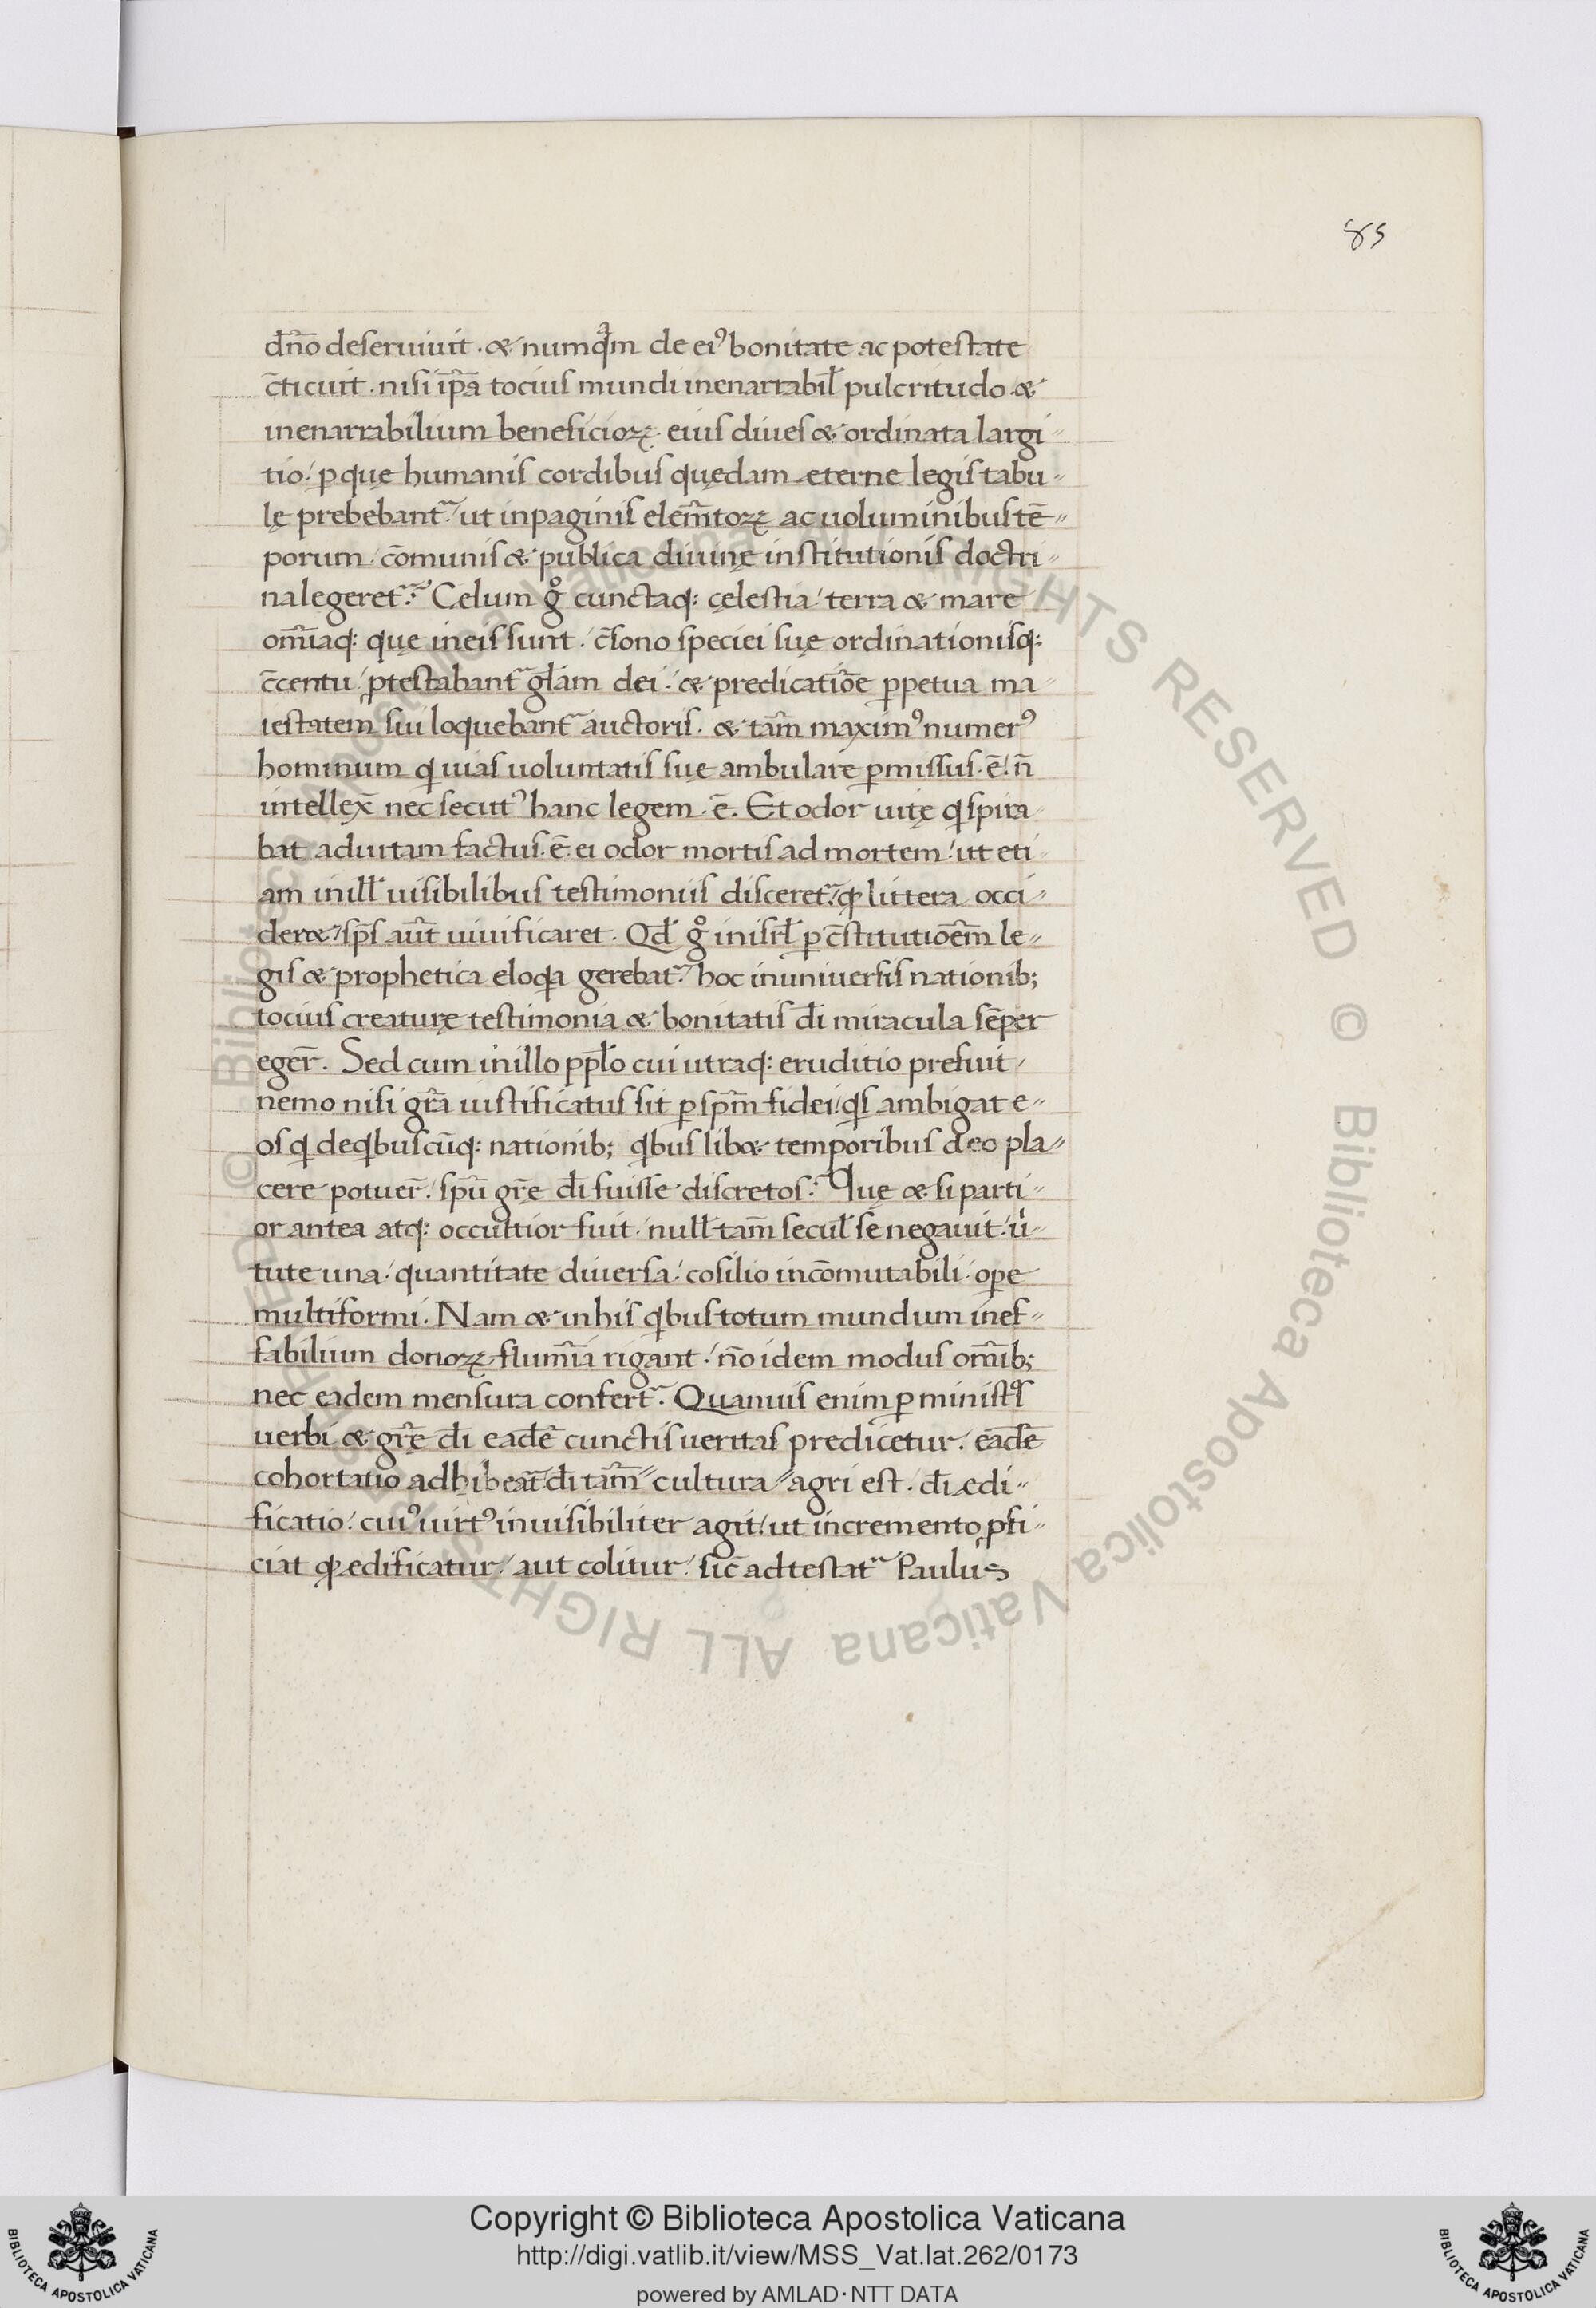 85
dn̄o deſeruiuit . & numqᵃ̄m de eiꝰ bonitate ac poteſtate
c̄ticuit . niſi ip̄a tociuſ mundi inenarrabil̄ pulcritudo . &
inenarrabilium beneficioꝝ eiuſ diueſ & ordinata largi⸗
tio / ꝑ quę humaniſ cordibuſ quędam eterne legiſ tabu⸗
lę prebebant᷑ / ut inpaginiſ elem̄toꝝ ac uoluminibuſ tē⸗
porum / cōmuniſ & publica diuinę inſtitutioniſ doctri⸗
na legeret᷑ . Celum gͦ cunctaq: cęleſtia / terra & mare
om̄iaq: quę ineiſ ſunt / c̄ſono ſpeciei ſuę ordinationiſq:
c̄centu / ꝓteſtabant᷑ gl̄am dei . & predicatiōe ꝑpetua ma⸗
ieſtatem ſui loquebant᷑ auctoriſ . & tam̄ maximꝰ numerꝰ
hominum q̇ uiaſ uoluntatiſ ſuę ambulare ꝑmiſſuſ . ē / n̄
intellex̄ nec ſecutꝰ hanc legem . ē . Et odor uitę q̇ ſpira
bat aduitam factuſ . ē ei odor mortiſ ad mortem / ut eti
am inill̄ uiſibilibuſ teſtimoniiſ diſceret᷑ / ꝙ littera occi⸗
der& / ſp̄ſ aut̄ uiuificaret . Qd̄ gͦ iniſrl̄ ꝑ c̄ſtitutiōem̄ le⸗
giſ & prophetica eloq̇a gerebat᷑ / hoc inuniuerſiſ nationib;
tociuſ creaturę teſtimonia & bonitatiſ dī miracula ſēper
eger̄ . Sed cum inillo pp̄lo cui utraq: eruditio prefuit /
nemo niſi gr̄a iuſtificatuſ ſit ꝑ ſpm̄ fidei / q̇ſ ambigat e⸗
oſ q̇ deq̇buſcūq: nationib; q̇buſlib& temporibuſ deo pla⸗
cere potuer̄ / ſpū gr̄ę dī fuiſſe diſcretoſ . Quę & ſi parti⸗
or antea atq: occultior fuit / null̄ tam̄ ſecul̄ ſe negauit / uⁱ⸗
tute una / quantitate diuerſa / coſilio incōmutabili / oꝑe
multiformi . Nam & inhiſ q̇buſ totum mundum inef⸗
fabilium donoꝝ flum̄ia rigant / n̄o idem moduſ om̄ib;
nec eadem menſura confert᷑ . Quamuiſ enim ꝑ miniſtͦſ
uerbi & gr̄ę dī eadē cunctiſ ueritaſ predicetur / eādē
cohortatio adhibeat᷑ / dī tam̄ cultura agri eſt / dī edi⸗
ficatio / cuiꝰ uirtꝰ inuiſibiliter agit / ut incremento ꝓfi⸗
ciat ꝙ edificatur / aut colitur / ſic̄ adteſtat᷑ Pauluſ
© Biblioteca Apostolica Vaticana ALL RIGHTS RESERVED
© Biblioteca Apostolica Vaticana ALL RIGHTS RESERVED
Copyright © Biblioteca Apostolica Vaticana
http://digi.vatlib.it/view/MSS_Vat.lat.262/0173
powered by AMLAD·NTT DATA
BIBLIOTECA APOSTOLICA VATICANA
BIBLIOTECA APOSTOLICA VATICANA